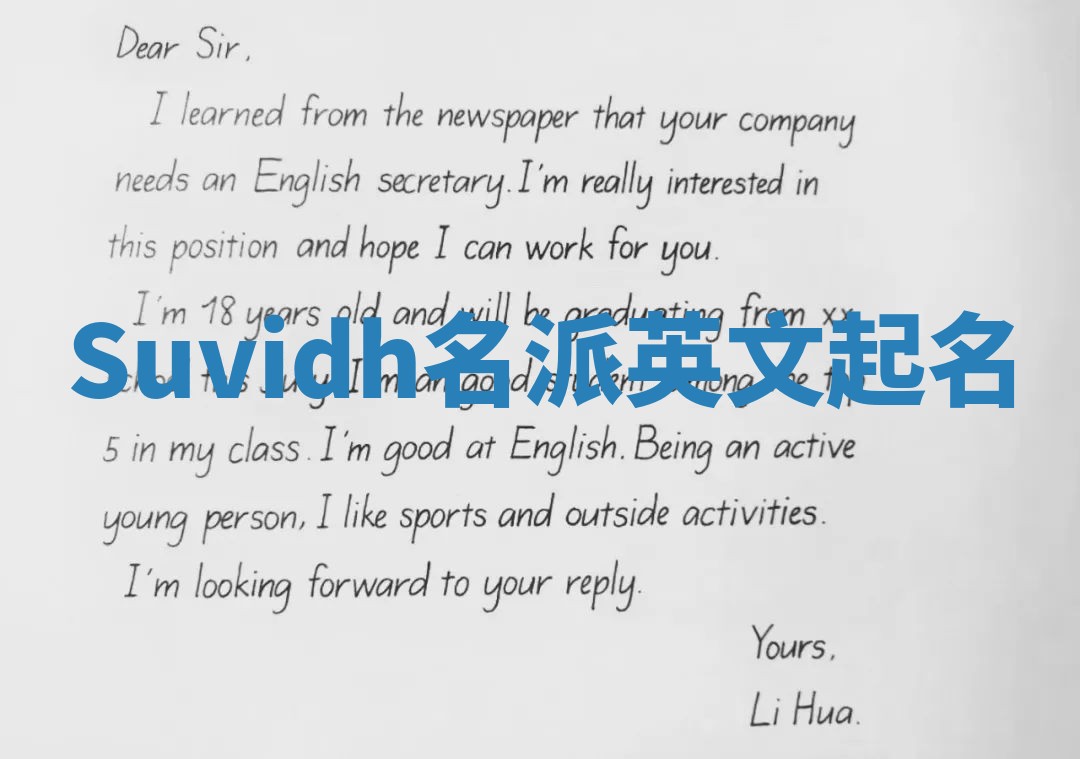 Dear Sir,
I learned from the newspaper that your company
needs an English secretary. I'm really interested in
this position and hope I can work for you.
I'm 18 years old and will be graduating from xx
Suvidh名派英文起名
5 in my class. I'm good at English. Being an active
young person, I like sports and outside activities.
I'm looking forward to your reply.
Yours,
Li Hua.